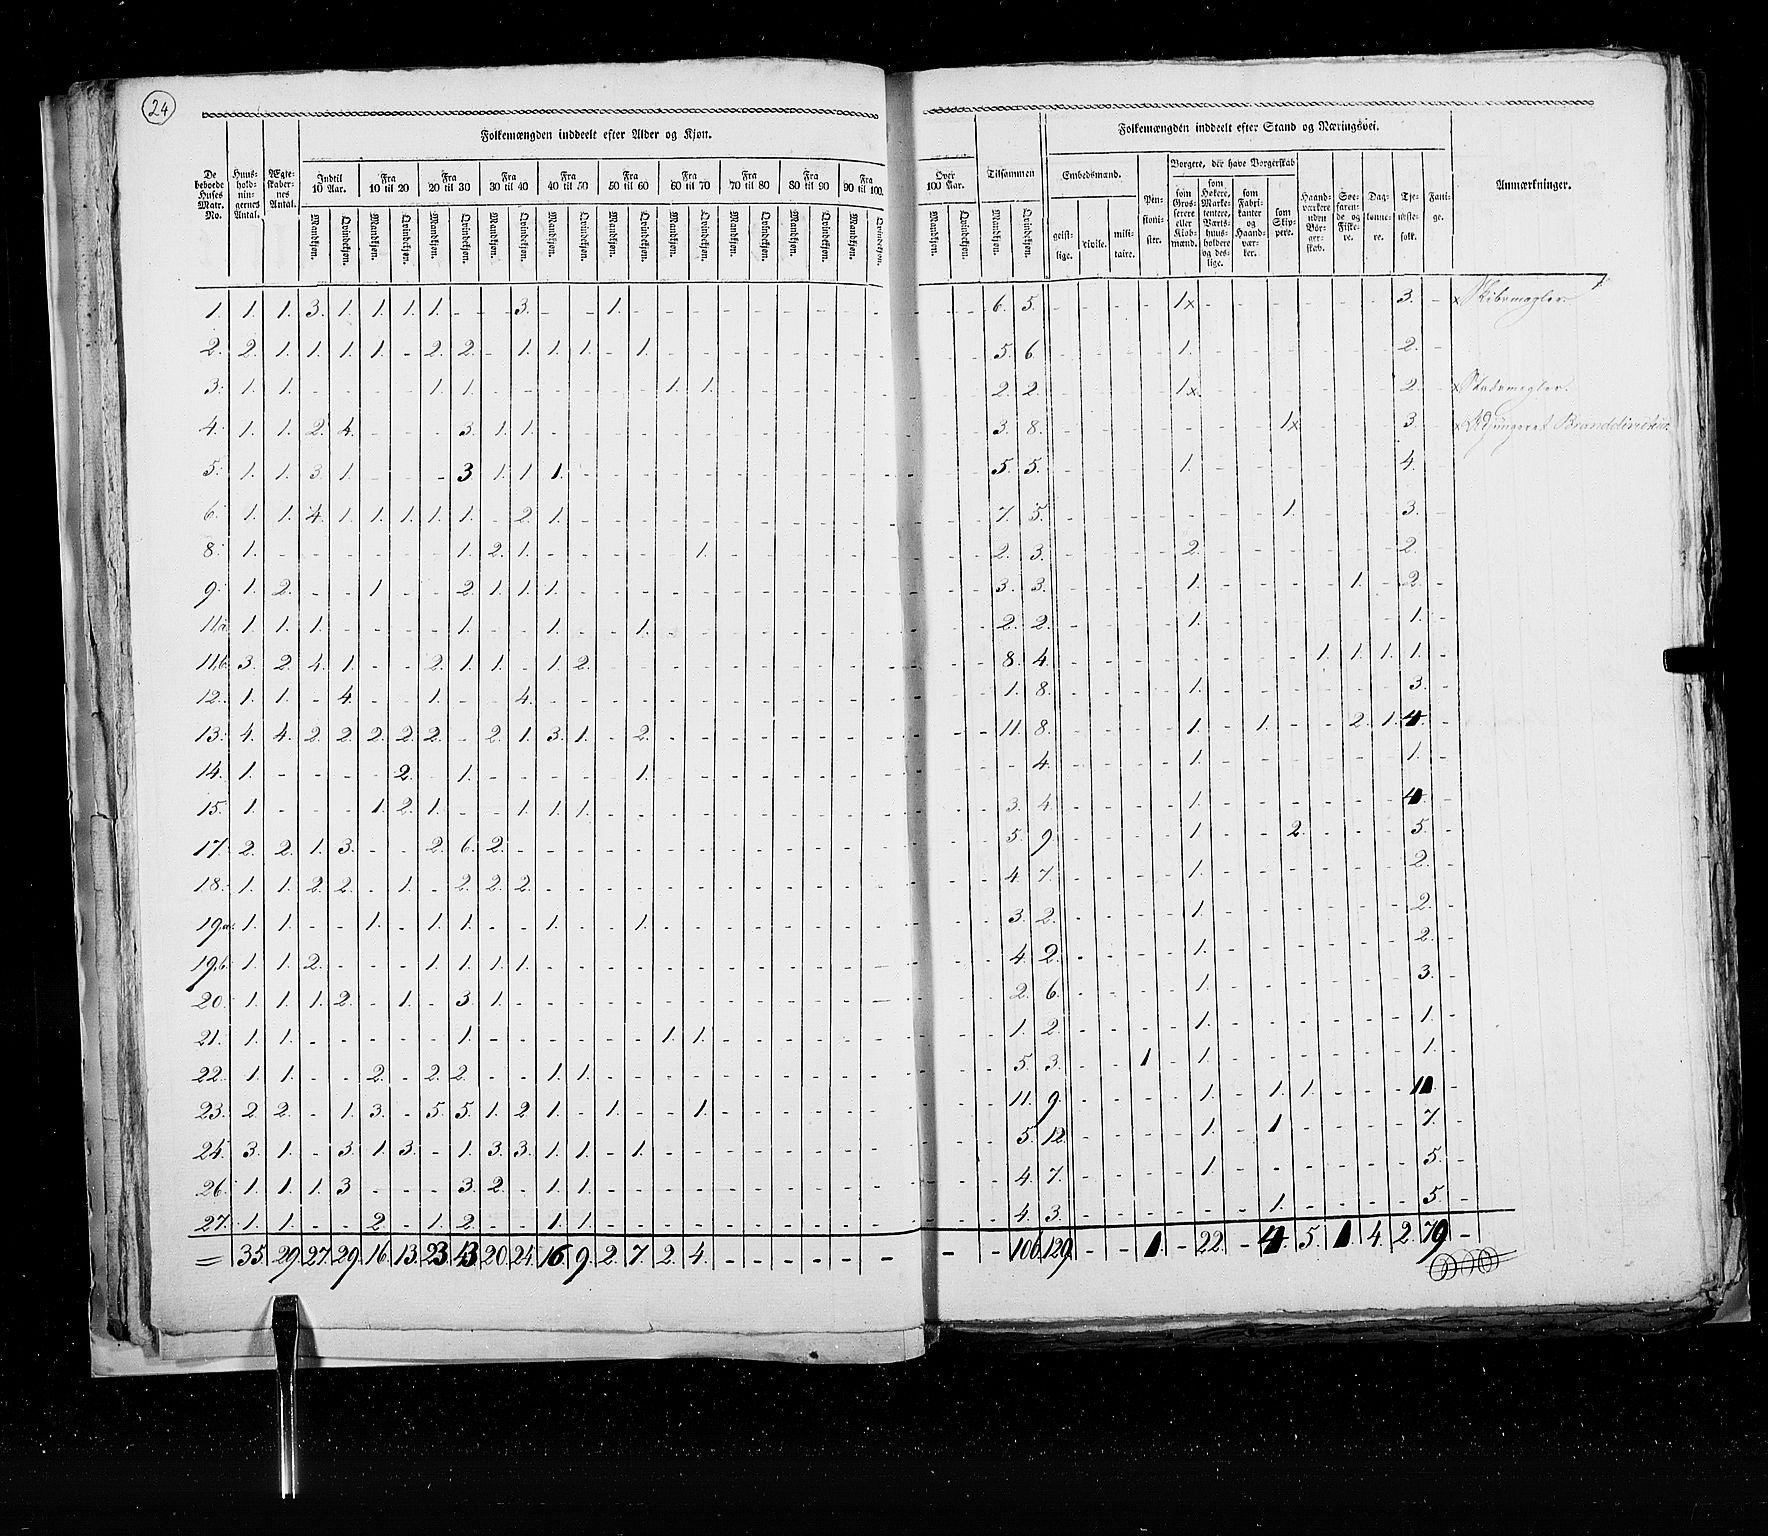 24
Folkemængden inddeelt efter Alder og Kjøn.
Folkemængden inddeelt efter Stand og Næringsvei.
De beboede Huses Matr. No. | Huus-hold-nin-gernes Antal. | Ægte-skaber-nes Antal. | Indtil 10 Aar. | Fra 10 til 20 | Fra 20 til 30 | Fra 30 til 40 | Fra 40 til 50 | Fra 50 til 60 | Fra 60 til 70 | Fra 70 til 80 | Fra 80 til 90 | Fra 90 til 100. | Over 100 Aar. | Tilsammen | Embedsmænd. | Pen-sionis-ter. | Borgere, der have Borgerskab | Haand-værkere uden Bor-ger-skab. | Søe-faren-de og Fiske-re. | Dag-lønne-re. | Tje-neste-folk. | Fatti-ge. | Anmærkninger.
Mandkjøn. Qvindekjøn. Mandkjøn. Qvindekjøn. Mandkjøn. Qvindekjøn. Mandkjøn. Qvindekjøn. Mandkjøn. Qvindekjøn. Mandkjøn. Qvindekjøn. Mandkjøn. Qvindekjøn. Mandkjøn. Qvindekjøn. Mandkjøn. Qvindekjøn. Mandkjøn. Qvindekjøn. Mandkjøn Qvindekjøn Mandkjøn. Qvindekjøn. | geist-lige. | civile. | mili-taire. | som Gros-serere eller Kjøb-mænd. | som Høkere, Marke-tentere, Værts-huus-holdere og des-lige. | som Fabri-kanter og Haand-vær-ker. | som Skip-pere.
1. 1. 1. 3. 1. 1. 1. 1. - - 3. - - 1. - - - - - - - - - - - 6. 5. - - - - 1x - - - - - - 3. - x Skibsmægler.
2. 2. 1. 1. 1. 1. - 2. 2. - 1. 1. 1. - 1. - - - - - - - - - - 5. 6. - - - - 1. - - - - - - 2. -
3. 1. 1. - - - - 1. 1. - - - - - - 1. 1. - - - - - - - - 2. 2. - - - - 1x. - - - - - - 2. - x Stadsmægler.
4. 1. 1. 2. 4. - - - 3. 1. 1. - - - - - - - - - - - - - - 3. 8. - - - - - - - 1x - - - 3. - x Adjungeret Branddirecteur
5. 1. 1. 3. 1. - - - 3. 1. 1. 1. - - - - - - - - - - - - - 5. 5. - - - - 1. - - - - - - 4. -
6. 1. 1. 4. 1. 1. 1. 1. 1. - 2. 1. - - - - - - - - - - - - - 7. 5. - - - - - - - 1. - - - 3. -
8. 1. - - - - - - 1. 2. 1. - - - - - 1. - - - - - - - - 2. 3. - - - - 2. - - - - - - 2. -
9. 1. 2. - - 1. - - 2. 1. 1. 1. - - - - - - - - - - - - - 3. 3. - - - - 1. - - - - 1. - 2. -
11a 1. 1. 1. - - - - 1. - - 1. - - 1. - - - - - - - - - - 2. 2. - - - - 1. - - - - - - 1. -
11b. 3. 2. 4. 1. - - 2. 1. 1. - 1. 2. - - - - - - - - - - - - 8. 4. - - - - - - - - 1. 1. 1. 1. -
12. 1. 1. - 4. - - 1. - - 4. - - - - - - - - - - - - - - 1. 8. - - - - 1. - - - - - - 3. -
13. 4. 4. 2. 2. 2. 2. 2. - 2. 1. 3. 1. - 2. - - - - - - - - - - 11. 8. - - - - 1. - 1. - - 2. 1. 4. -
14. 1. - - - - 2. - 1. - - - - - 1. - - - - - - - - - - - 4. - - - - 1. - - - - - - 1. -
15. 1. - - - 1. 2. 1. - - 1. 1. 1. - - - - - - - - - - - - 3. 4. - - - - 1. - - - - - - 4. -
17. 2. 2. 1. 3. - - 2. 6. 2. - - - - - - - - - - - - - - - 5. 9. - - - - 1. - - 2. - - - 5. -
18. 1. 1. 2. 2. - 1. - 2. 2. 2. - - - - - - - - - - - - - - 4. 7. - - - - 1. - - - - - - 2. -
19a. 1. 1. - - 1. - 1. 1. - - 1. - - 1. - - - - - - - - - - 3. 2. - - - - 1. - - - - - - 2. -
19b. 1. 1. 2. - - - 1. 1. 1. 1. - - - - - - - - - - - - - - 4. 2. - - - - 1. - - - - - - 2. -
20. 1. 1. 1. 2. - 1. - 3. 1. - - - - - - - - - - - - - - - 2. 6. - - - - 1. - - - - - - 3. -
21. 1. 1. - - - - - 1. - - - - - - 1. 1. - - - - - - - - 1. 2. - - - - 1. - - - - - - 1. -
22. 1. 1. - - 2. - 2. 2. - - 1. 1. - - - - - - - - - - - - 5. 3. - - 1 - 1. - - - - - - 1. -
23. 2. 2. - 1. 3. - 5. 5. 1. 2. 1. - 1. - - 1. - - - - - - - - 11. 9. - - - - 1. - 1. 1. - - - 11. -
24. 3. 1. - 3. 1. 3. - 1. 3. 3. 1. 1. - 1. - - - - - - - - - - 5. 12. - - - - 1. - 1 - - - - 7. -
26. 1. 1. 1. 3 - - - 3. 2. - 1. 1. - - - - - - - - - - - - 4. 7. - - - - 1. - - - - - - 5. -
27. 1. 1. - - 2. - 1. 2. - - 1. 1. - - - - - - - - - - - - 4. 3. - - - - - - 1. - - - - 5. -
= 35. 29. 27. 29. 16. 13. 23. 43. 20. 24. 16. 9. 2. 7. 2. 4. - - - - - - - - 106. 129. - - 1. - 22. - 4. 5. 1. 4. 2. 79 -